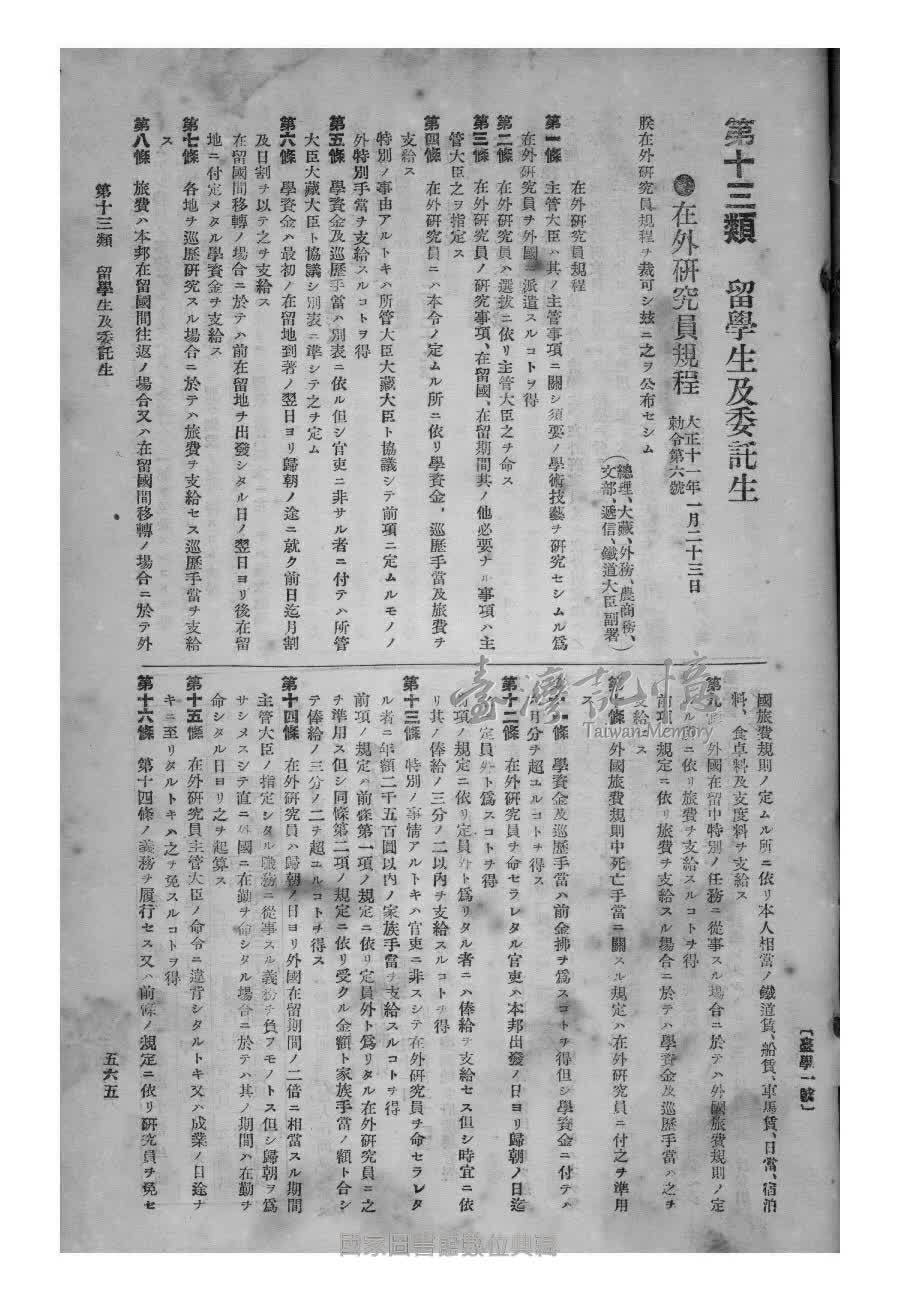 第十三類　留學生及委託生
●在外研究員規程
大正十一年一月二十三日
勅令第六號
朕在外研究員規程ヲ裁可シ玆ニ之ヲ公布セシム
(總理、大藏、外務、農商務、
文部、遞信、鐵道大臣副署)
在外研究員規程
第一條　主管大臣ハ其ノ主管事項ニ關シ須要ノ學術技藝ヲ研究セシムル爲
在外研究員ヲ外國ニ派遣スルコトヲ得
第二條　在外研究員ハ選拔ニ依リ主管大臣之ヲ命ス
第三條　在外研究員ノ研究事項、在留國、在留期間其ノ他必要ナル事項ハ主
管大臣之ヲ指定ス
第四條　在外研究員ニハ本令ノ定ムル所ニ依リ學資金、巡歷手當及旅費ヲ
支給ス
特別ノ事由アルトキハ所管大臣大藏大臣ト協議シテ前項ニ定ムルモノノ
外特別手當ヲ支給スルコトヲ得
第五條　學資金及巡歷手當ハ別表ニ依ル但シ官吏ニ非サル者ニ付テハ所管
大臣大藏大臣ト協議シ別表ニ準シテ之ヲ定ム
第六條　學資金ハ最初ノ在留地到著ノ翌日ヨリ歸朝ノ途ニ就ク前日迄月割
及日割ヲ以テ之ヲ支給ス
在留國間移轉ノ場合ニ於テハ前在留地ヲ出發シタル日ノ翌日ヨリ後在留
地ニ付定メタル學資金ヲ支給ス
第七條　各地ヲ巡歷硏究スル場合ニ於テハ旅費ヲ支給セス巡歷手當ヲ支給
ス
第八條　旅費ハ本邦在留國間往返ノ場合又ハ在留國間移轉ノ場合ニ於テ外
第十三類　留學生及委託生
〔臺學一號〕
國旅費規則ノ定ムル所ニ依リ本人相當ノ鐵道賃、船賃、車馬賃、日當、宿泊
料、食卓料及支度料ヲ支給ス
第九條　外國在留中特別ノ任務ニ從事スル場合ニ於テハ外國旅費規則ノ定
ムルニ依リ旅費ヲ支給スルコトヲ得
前項ノ規定ニ依リ旅費ヲ支給スル場合ニ於テハ學資金及巡歷手當ハ之ヲ
支給セス
第十條　外國旅費規則中死亡手當ニ關スル規定ハ在外研究員ニ付之ヲ準用
ス
第十一條　學資金及巡歷手當ハ前金拂ヲ爲スコトヲ得但シ學資金ニ付テハ
月分ヲ超ユルコトヲ得ス
第十二條　在外研究員ヲ命セラレタル官吏ハ本邦出發ノ日ヨリ歸朝ノ日迄
定員外ト爲スコトヲ得
前項ノ規定ニ依リ定員外ト爲リタル者ニハ俸給ヲ支給セス但シ時宜ニ依
リ其ノ俸給ノ三分ノ二以內ヲ支給スルコトヲ得
第十三條　特別ノ事情アルトキハ官吏ニ非スシテ在外研究員ヲ命セラレタ
ル者ニ年額二千五百圓以內ノ家族手當ヲ支給スルコトヲ得
前項ノ規定ハ前條第一項ノ規定ニ依リ定員外ト爲リタル在外研究員ニ之
ヲ準用ス但シ同條第二項ノ規定ニ依リ受クル金額ト家族手當ノ額ト合シ
テ俸給ノ三分ノ二ヲ超ユルコトヲ得ス
第十四條　在外研究員ハ歸朝ノ日ヨリ外國在留期間ノ二倍ニ相當スル期間
主管大臣ノ指定シタル職務ニ從事スル義務ヲ負フモノトス但シ歸朝ヲ爲
サシメスシテ直ニ外國ニ在勤ヲ命シタル場合ニ於テハ其ノ期間ハ在勤ヲ
命シタル日ヨリ之ヲ起算ス
第十五條　在外研究員主管大臣ノ命令ニ違背シタルトキ又ハ成業ノ目途ナ
キニ至リタルトキハ之ヲ免スルコトヲ得
第十六條　第十四條ノ義務ヲ履行セス又ハ前條ノ規定ニ依リ研究員ヲ免セ
五六五
臺灣記憶
Taiwan Memory
國家圖書館數位典藏